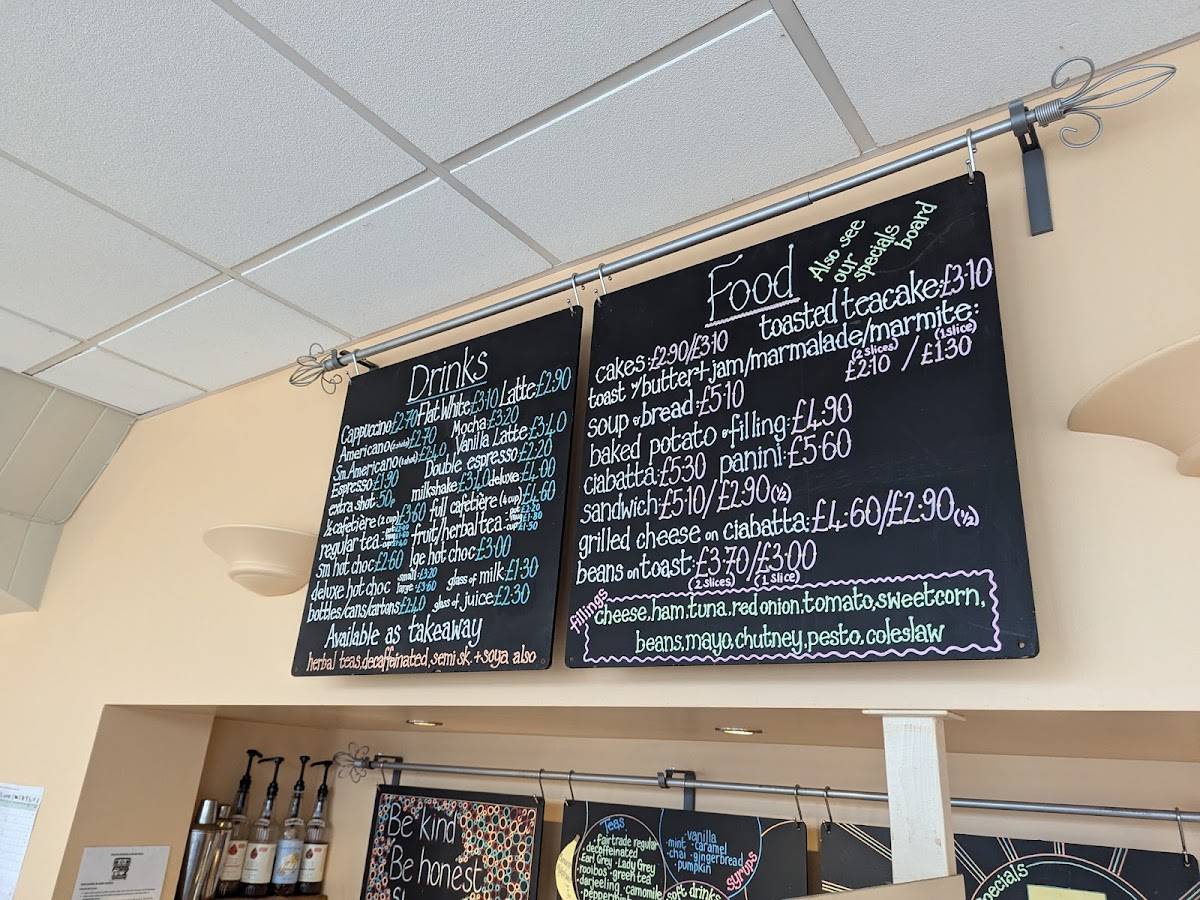 Drinks
Cappuccino:£2.70 Flat White:£3.10 Latte:£2.90
Americano £2.70 Mocha:£3.20
Sm. Americano £2.40 Vanilla Latte:£3.40
Espresso:£1.90 Double espresso:£2.20
extra shot:50p milkshake:£3.40 deluxe:£4.00
½ cafetière (2 cup) £3.60 full cafetière (4 cup) £4.60
regular tea fruit/herbal tea - pot £2.20 mug £1.80 cup £1.50
sm hot choc:£2.60 lge hot choc:£3.00
deluxe hot choc small:£3.20 large:£3.60 glass of milk:£1.30
bottles/cans/cartons £2.40 glass of juice:£2.30
Available as takeaway
herbal teas, decaffeinated, semi sk. + soya also
Food
Also see
our
specials
board
cakes:£2.90/£3.10 toasted teacake:£3.10
toast w/butter + jam/marmalade/marmite:
(2 slices) (1 slice)
£2.10 / £1.30
soup & bread:£5.10
baked potato & filling:£4.90
ciabatta:£5.30 panini:£5.60
sandwich:£5.10/£2.90 (½)
grilled cheese on ciabatta:£4.60/£2.90 (½)
beans on toast:£3.70/£3.00
(2 slices) (1 slice)
fillings
cheese, ham, tuna, red onion, tomato, sweetcorn,
beans, mayo, chutney, pesto, coleslaw
Be kind
Be honest
Teas
·fairtrade regular
decaffeinated
·Earl Grey ·Lady Grey
·rooibos ·green tea
·darjeeling ·camomile
·peppermint
·vanilla
·mint ·caramel
·chai ·gingerbread
·pumpkin
syrups
soft drinks
Specials